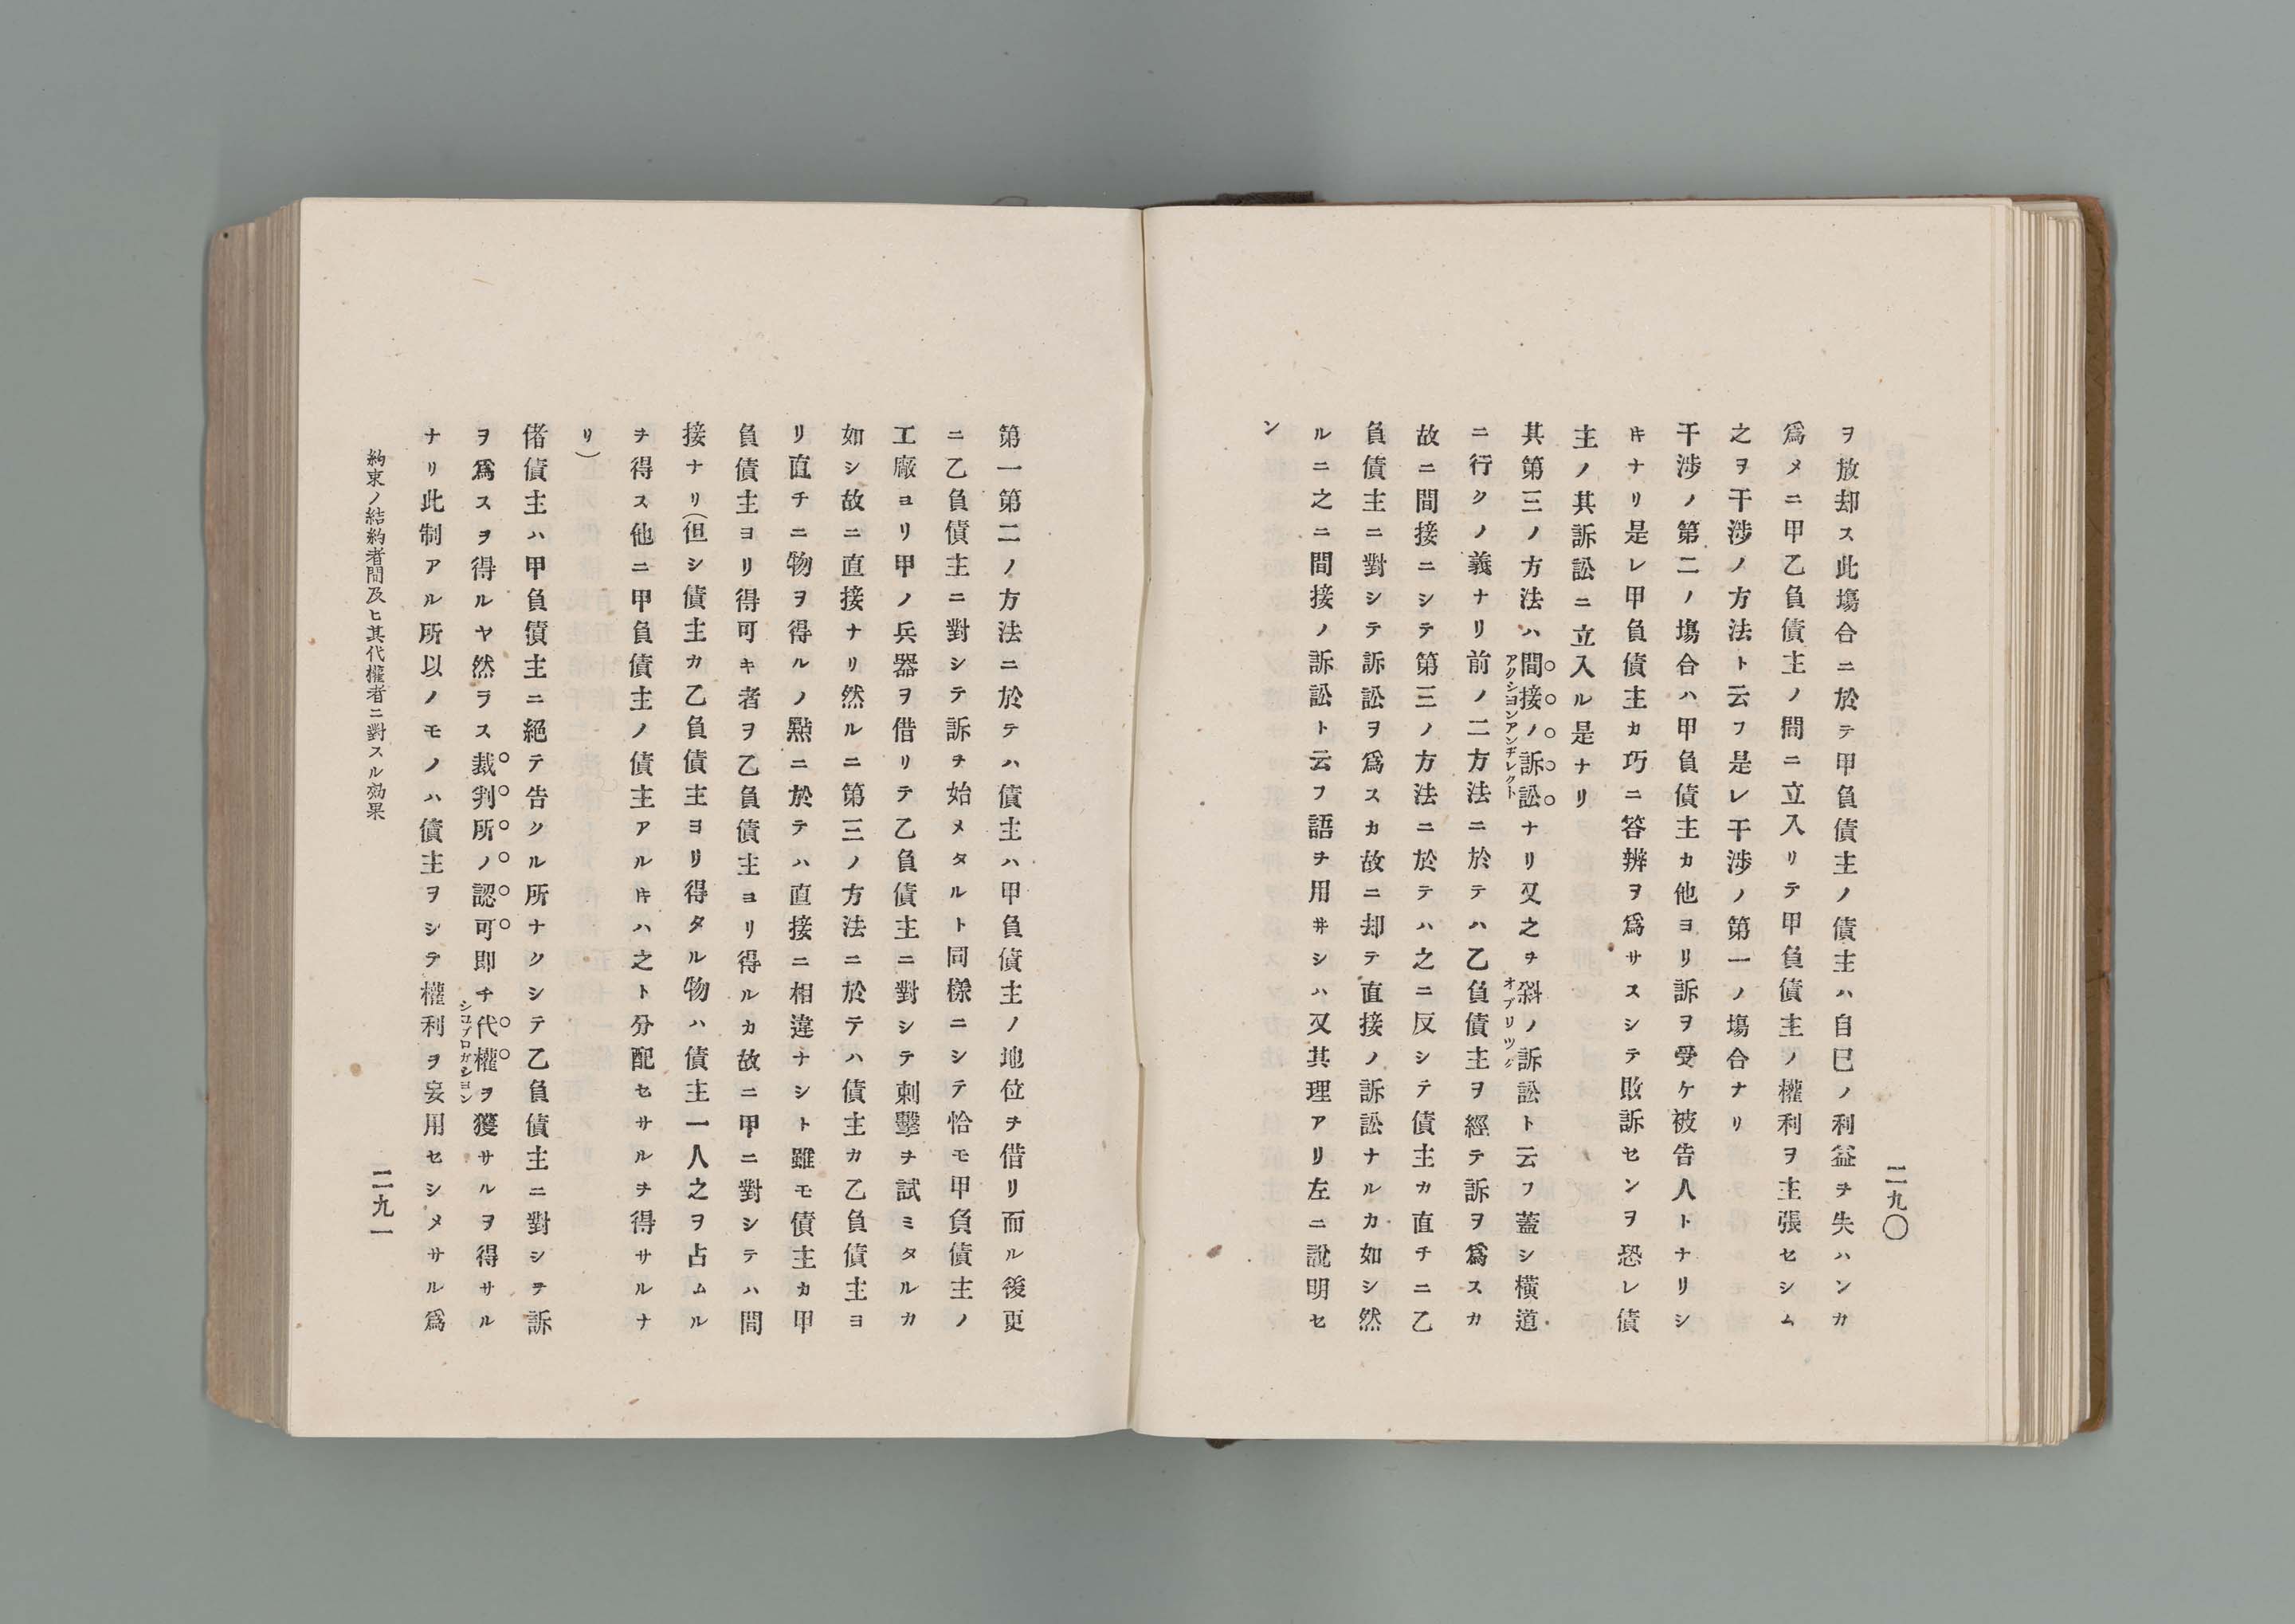 二九〇
ヲ放却ス此塲合ニ於テ甲負債主ノ債主ハ自巳ノ利益ヲ失ハンカ
爲メニ甲乙負債主ノ間ニ立入リテ甲負債主ノ權利ヲ主張セシム
之ヲ干渉ノ方法ト云フ是レ干渉ノ第一ノ塲合ナリ
干渉ノ第二ノ塲合ハ甲負債主カ他ヨリ訴ヲ受ケ被告人トナリシ
𪜈ナリ是レ甲負債主カ巧ニ答辨ヲ爲サスシテ敗訴センヲ恐レ債
主ノ其訴訟ニ立入ル是ナリ
其第三ノ方法ハ間接ノ訴訟ナリ又之ヲ斜ノ訴訟ト云フ蓋シ橫道
アクシヨンアンヂレクト
オブリツク
ニ行クノ義ナリ前ノ二方法ニ於テハ乙負債主ヲ經テ訴ヲ爲スカ
故ニ間接ニシテ第三ノ方法ニ於テハ之ニ反シテ債主カ直チニ乙
負債主ニ對シテ訴訟ヲ爲スカ故ニ却テ直接ノ訴訟ナルカ如シ然
ルニ之ニ間接ノ訴訟ト云フ語ヲ用井シハ又其理アリ左ニ說明セ
ン
第一第二ノ方法ニ於テハ債主ハ甲負債主ノ地位ヲ借リ而ル後更
ニ乙負債主ニ對シテ訴ヲ始メタルト同樣ニシテ恰モ甲負債主ノ
工廠ヨリ甲ノ兵器ヲ借リテ乙負債主ニ對シテ刺擊ヲ試ミタルカ
如シ故ニ直接ナリ然ルニ第三ノ方法ニ於テハ債主カ乙負債主ヨ
リ直チニ物ヲ得ルノ點ニ於テハ直接ニ相違ナシト雖モ債主カ甲
負債主ヨリ得可キ者ヲ乙負債主ヨリ得ルカ故ニ甲ニ對シテハ間
接ナリ(但シ債主カ乙負債主ヨリ得タル物ハ債主一人之ヲ占ムル
ヲ得ス他ニ甲負債主ノ債主アル𪜈ハ之ト分配セサルヲ得サルナ
リ)
偖債主ハ甲負債主ニ絕テ告クル所ナクシテ乙負債主ニ對シテ訴
ヲ爲スヲ得ルヤ然ラス裁判所ノ認可即チ代權ヲ獲サルヲ得サル
シユブロガシヨン
ナリ此制アル所以ノモノハ債主ヲシテ權利ヲ妄用セシメサル爲
約束ノ結約者間及ヒ其代權者ニ對スル効果
二九一